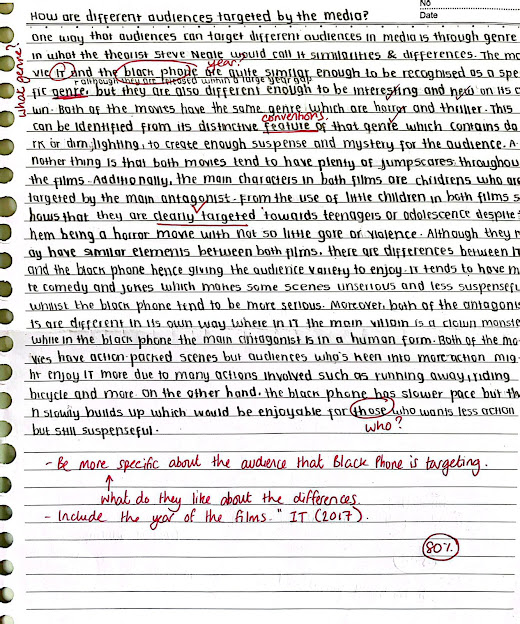 No
Date
How are different audiences targeted by the media?
One way that audiences can target different audiences in media is through genre
in what the theorist Steve Neale would call it similarities & differences. The mo
year?
vie It and the black phone are quite similar enough to be recognised as a spe
although they are released within a large year gap
what genre?
fic genre, but they are also different enough to be interesting and new on its o
wn. Both of the movies have the same genre which are horror and thriller. This
conventions
can be identified from its distinctive feature of that genre which contains da
rk or dim lighting, to create enough suspense and mystery for the audience. A
nother thing is that both movies tend to have plenty of jumpscares throughou
the films. Additionally, the main characters in both films are childrens who are
targeted by the main antagonist. From the use of little children in both films s
hows that they are clearly targeted towards teenagers or adolescence despite t
hem being a horror movie with not so little gore or violence. Although they m
ay have similar elements between both films, there are differences between It
and the black phone hence giving the audience variety to enjoy. It tends to have mo
re comedy and jokes which makes some scenes unserious and less suspensefu
whilst the black phone tend to be more serious. Moreover, both of the antagonis
ts are different in its own way where in IT the main villain is a clown monste
while in the black phone the main antagonist is in a human form. Both of the mo
vies have action packed scenes but audiences who's keen into more action mig
ht enjoy IT more due to many actions involved such as running away, riding
bicycle and more. On the other hand, the black phone has slower pace but the
n slowly builds up which would be enjoyable for those who wants less action
but still suspenseful.
who?
- Be more specific about the audience that Black Phone is targeting.
What do they like about the differences.
- Include the year of the films. " IT (2017).
80%